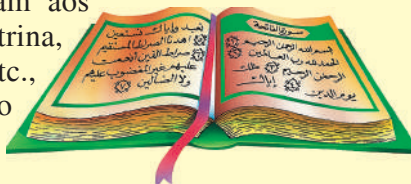 am aos
trina,
tc.,
o
سورة الفاتحة
بسم الله الرحمن الرحيم
الحمد لله رب العالمين
الرحمن الرحيم ملك
يوم الدين إياك
نعبد وإياك نستعين
اهدنا الصراط المستقيم
صراط الذين أنعمت
عليهم غير المغضوب عليهم
ولا الضالين